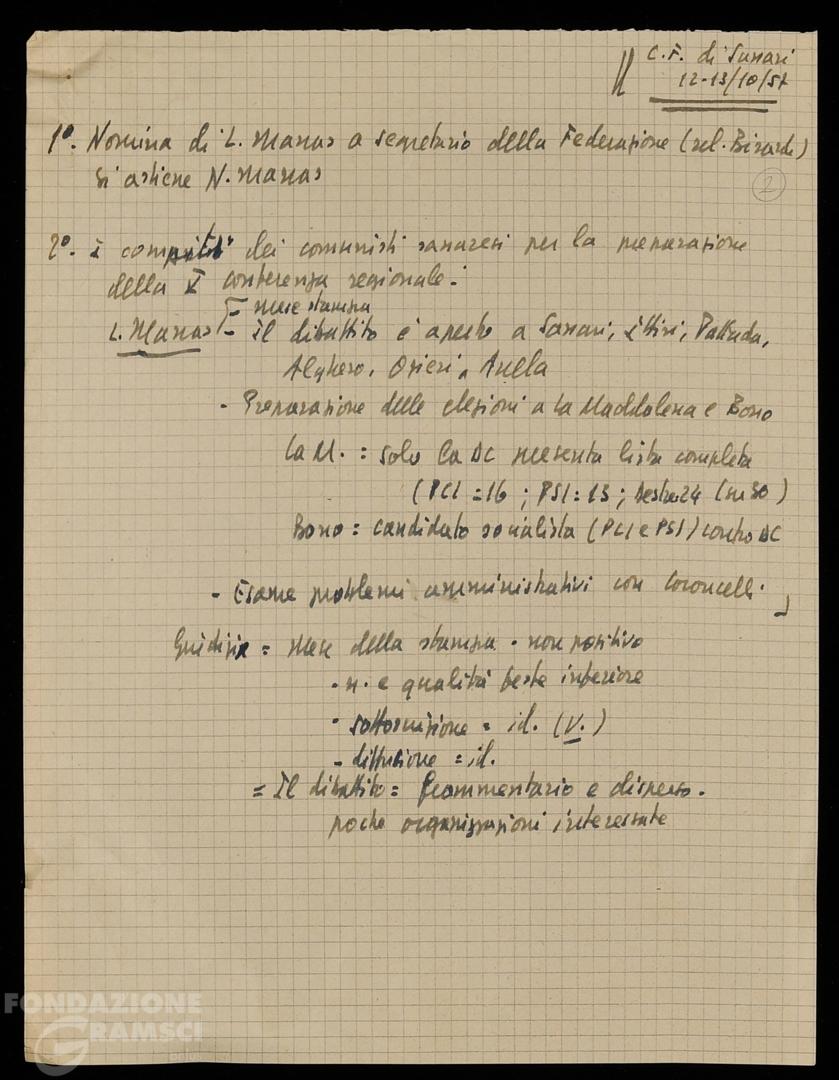 C.F. di Sassari
12-13/10/57
1º. Nomina di L. Marras a segretario della Federazione (rel. Birardi)
Si astiene N. Marras
2
2º. I compiti dei comunisti sassaresi per la preparazione
della V conferenza regionale.
- mese stampa
L. Marras - Il dibattito è aperto a Sassari, Ittiri, Pattada,
Alghero, Ozieri, Anela
- Preparazione delle elezioni a La Maddalena e Bono
La M. = solo la DC presenta lista completa
(PCI = 16; PSI = 13; destre 24 (su 30)
Bono = candidato socialista (PCI e PSI) contro DC
- Esame problemi amministrativi con
Giudizi = mese della stampa - non positivo
- n. e qualità feste inferiore
- sottoscrizione = id. (V.)
- diffusione = id.
= Il dibattito = frammentario e disperso.
poche organizzazioni interessate
FONDAZIONE
GRAMSCI